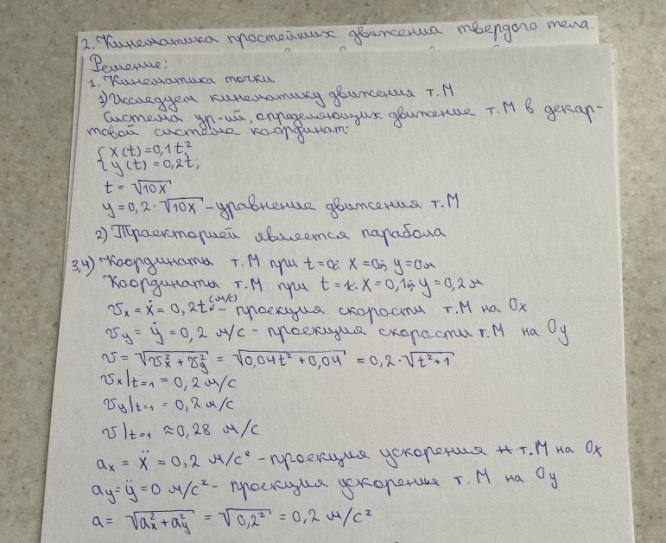 2. Кинематика простейших движений твердого тела.
Решение:
1. Кинематика точки
1) Исследуем кинематику движения т.М
Система ур-ий, определяющих движение т.М в декар-
товой системе координат:
{ x(t)=0,1t²
{ y(t)=0,2t;
t=√10x
y=0,2·√10x - уравнение движения т.М
2) Траекторией является парабола
3,4) Координаты т.М при t=0: x=0; y=0м
Координаты т.М при t=1: x=0,1; y=0,2м
νx=ẋ=0,2t (м/с) - проекция скорости т.М на Ox
νy=ẏ=0,2 м/с - проекция скорости т.М на Oy
ν=√νx²+νy² = √0,04t²+0,04 = 0,2·√t²+1
νx|t=1 = 0,2 м/с
νy|t=1 = 0,2 м/с
ν|t=1 ≈ 0,28 м/с
ax = ẍ = 0,2 м/с² - проекция ускорения т.М на Ox
ay=ÿ=0 м/с² - проекция ускорения т.М на Oy
a= √ax²+ay² = √0,2² = 0,2 м/с²